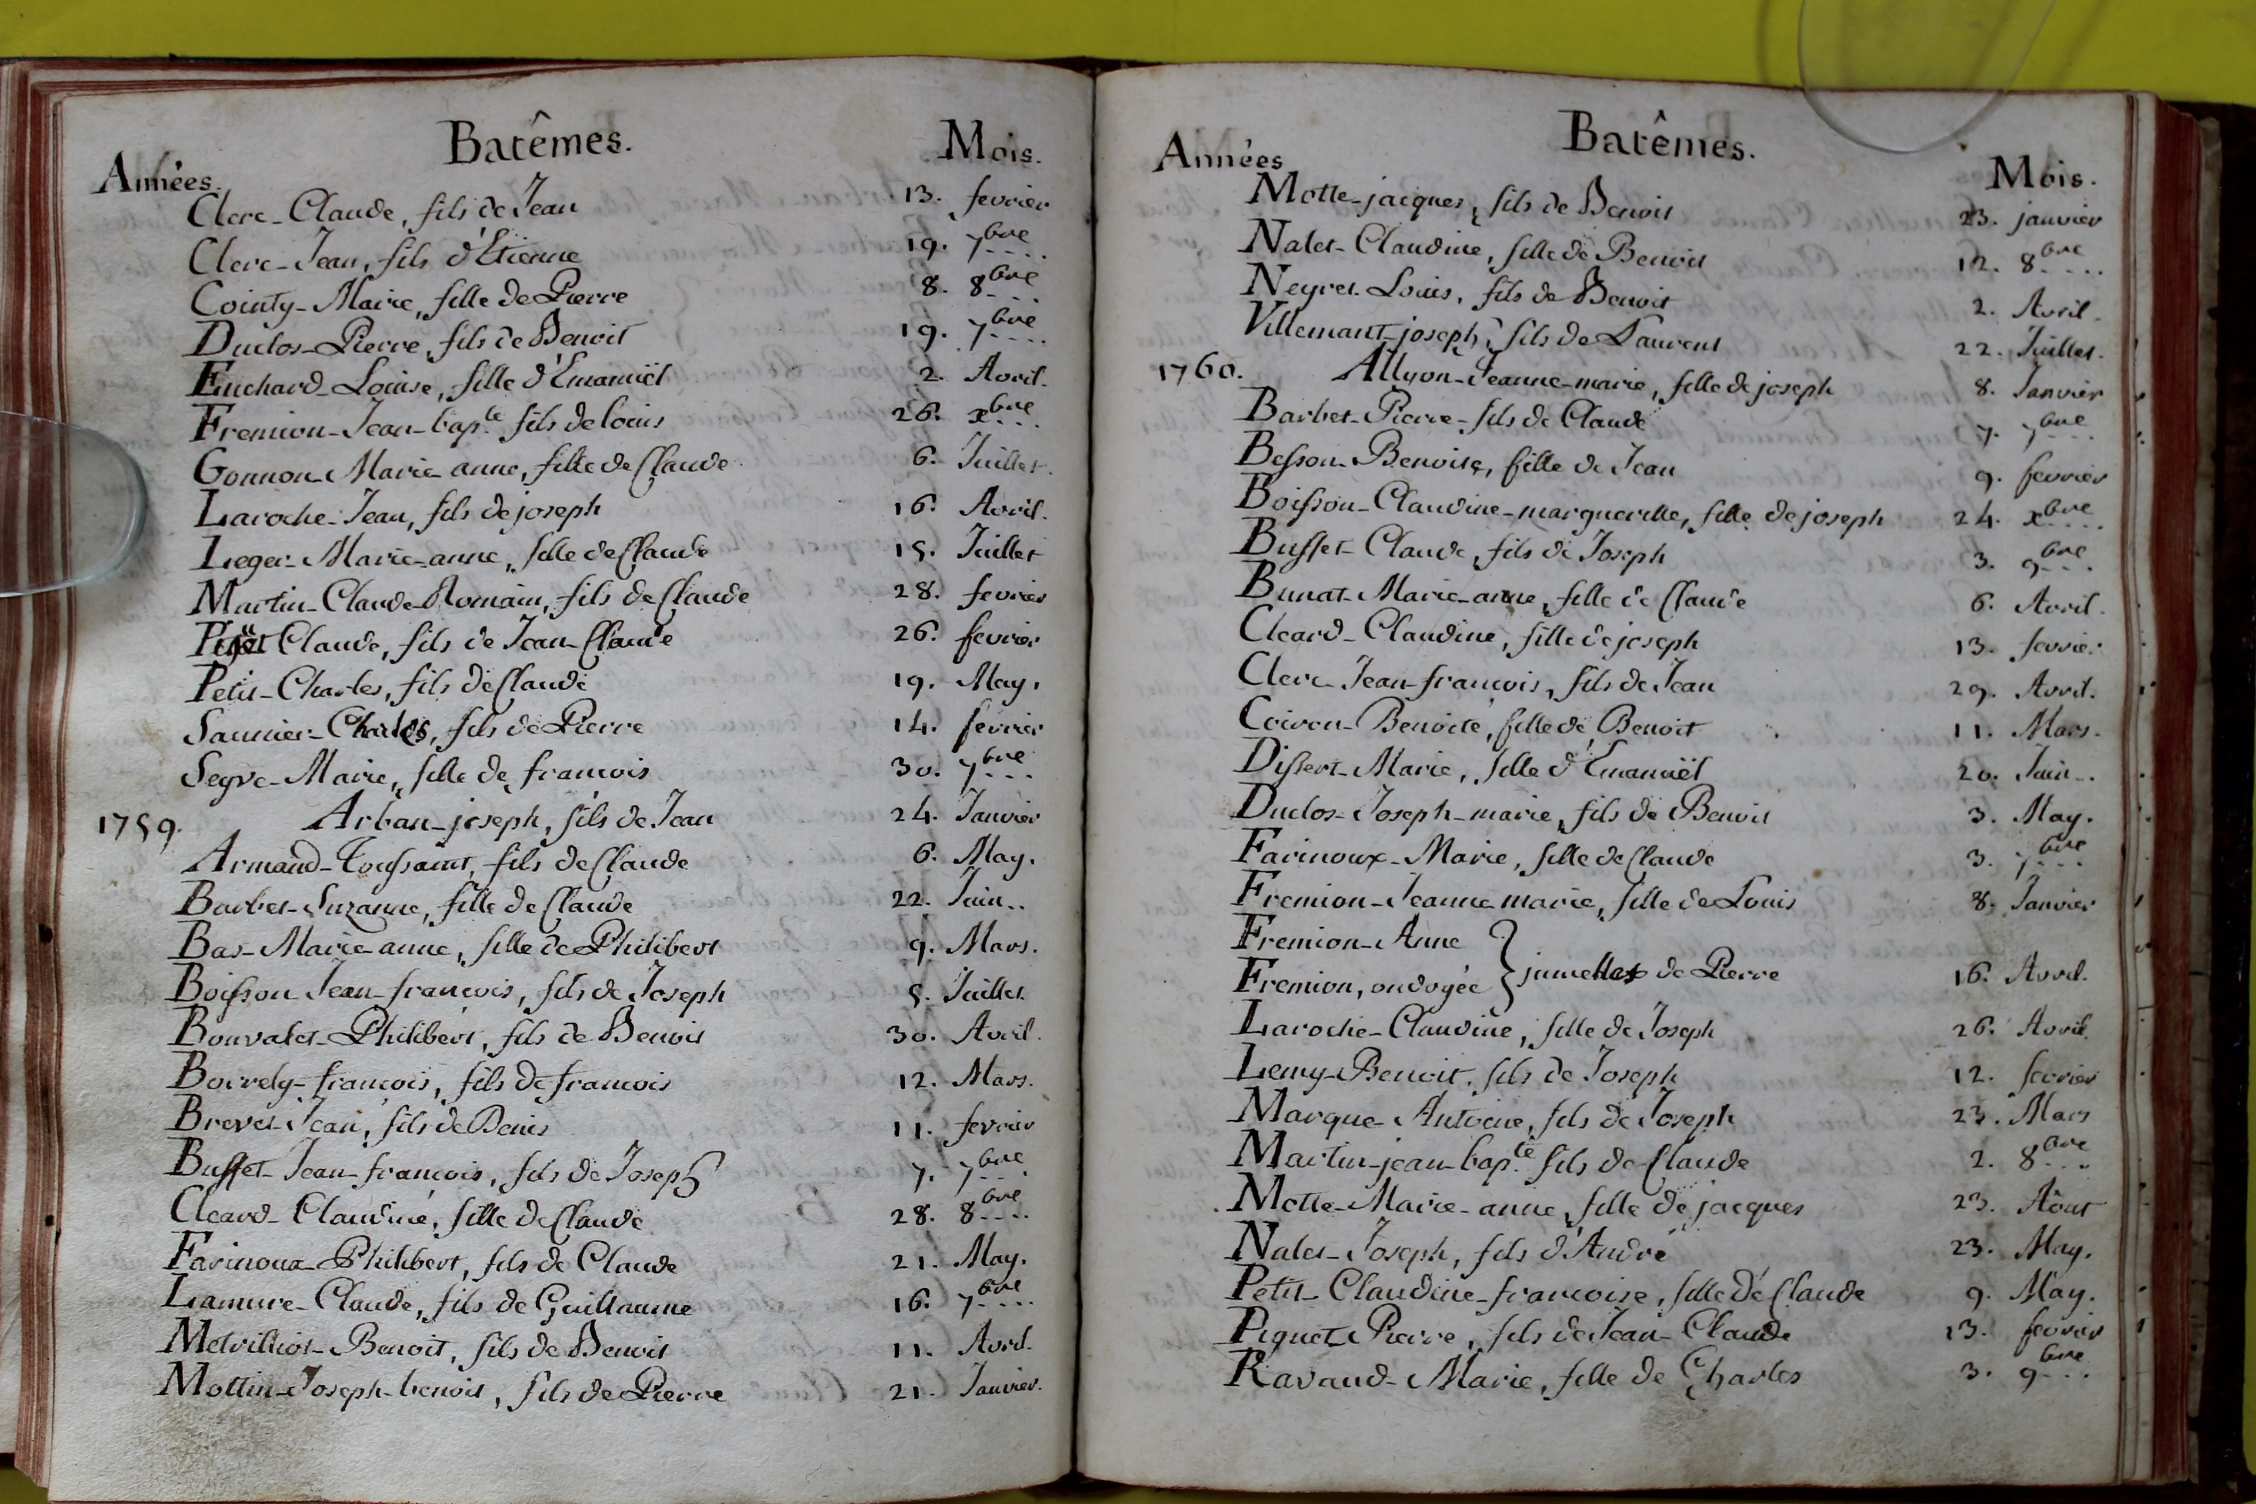 Batêmes.
Années. Mois.
Clerc-Claude, fils de Jean 13. fevrier
Clerc-Jean, fils d'Etienne 19. 7bre
Cointy-Marie, fille de Pierre 8. 8bre
Duclos-Pierre, fils de Benoit 19. 7bre
Euchard-Louise, fille d'Emanuël 2. Avril.
Fremion-Jean-bapte fils de louis 26. xbre
Gonnon-Marie-anne, fille de Claude 6. Juillet.
Laroche-Jean, fils de joseph 16. Avril.
Leger-Marie-anne, fille de Claude 15. Juillet
Martin-Claude-Romain, fils de Claude 28. fevrier
Claude, fils de Jean-Claude 26. fevrier
Petit-Charles, fils de Claude 19. May.
Saunier-Charles, fils de Pierre 14. fevrier
Seyve-Marie, fille de francois 30. 7bre
1759. Arban-joseph, fils de Jean 24. Janvier
Armand-Toussaint, fils de Claude 6. May.
Barbet-Suzanne, fille de Claude 22. Juin..
Bas-Marie-anne, fille de Philibert 9. Mars.
Boisson Jean-francois, fils de Joseph 5. Juillet
Bonvalet-Philibert, fils de Benoit 30. Avril.
Borrely-francois, fils de francois 12. Mars.
Brevet-Jean, fils de Denis 11. fevrier
Buffet-Jean-francois, fils de Joseph 7. 7bre
Cleard-Claudine, fille de Claude 28. 8bre
Farinoux-Philibert, fils de Claude 21. May.
Lamure-Claude, fils de Guillaume 16. 7bre
Metvilliot-Benoit, fils de Benoit 11. Avril.
Mottin-Joseph-benoit, fils de Pierre 21. Janvier.
Batêmes.
Années Mois.
Motte-jacques, fils de Benoit 23. janvier
Nalet-Claudine, fille de Benoit 12. 8bre
Neyret-Louis, fils de Benoit 2. Avril.
Villemant-joseph, fils de Laurent 22. Juillet.
1760. Allyon-Jeanne-marie, fille de joseph 8. Janvier
Barbet-Pierre-fils de Claude 7. 7bre
Besson-Benoite, fille de Jean 9. fevrier
Boisson-Claudine-marguerille, fille de joseph 24. xbre
Buffet-Claude, fils de Joseph 3. 9bre
Bunat-Marie-anne, fille de Claude 6. Avril.
Cleard-Claudine, fille de joseph 13. fevrier
Clerc-Jean-francois, fils de Jean 29. Avril.
Coivon-Benoite, fille de Benoit 11. Mars.
Dissert-Marie, fille d'Emanuël 20. Juin..
Duclos-Joseph-marie, fils de Benoit 3. May.
Farinoux-Marie, fille de Claude 3. 7bre
Fremion-Jeanne marie, fille de Louis 8. Janvier
Fremion-Anne
jumelles de Pierre 16. Avril.
Fremion, ondoyée
Laroche-Claudine, fille de Joseph 26. Avril.
Lemy-Benoit, fils de Joseph 12. fevrier
Marque-Antoine, fils de Joseph 23. Mars
Martin-jean-bapte fils de Claude 2. 8bre
Motte-Marie-anne, fille de jacques 23. Aôut
Nalet-Joseph, fils d'André 23. May.
Petit-Claudine-francoise, fille de Claude 9. May.
Piquet-Pierre, fils de Jean-Claude 13. fevrier
Ravaud-Marie, fille de Charles 3. 9bre